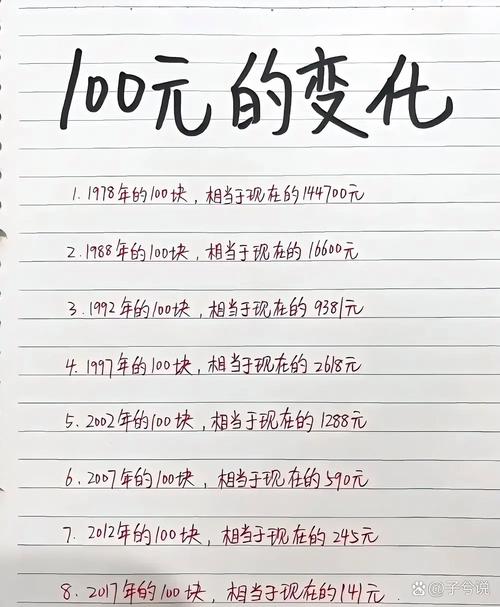 100元的变化
1.1978年的100块，相当于现在的144700元
2.1988年的100块，相当于现在的16600元
3.1992年的100块，相当于现在的9381元
4.1997年的100块，相当于现在的2618元
5.2002年的100块，相当于现在的1288元
6.2007年的100块，相当于现在的590元
7.2012年的100块，相当于现在的245元
8.2017年的100块，相当于现在的141元
@子兮说